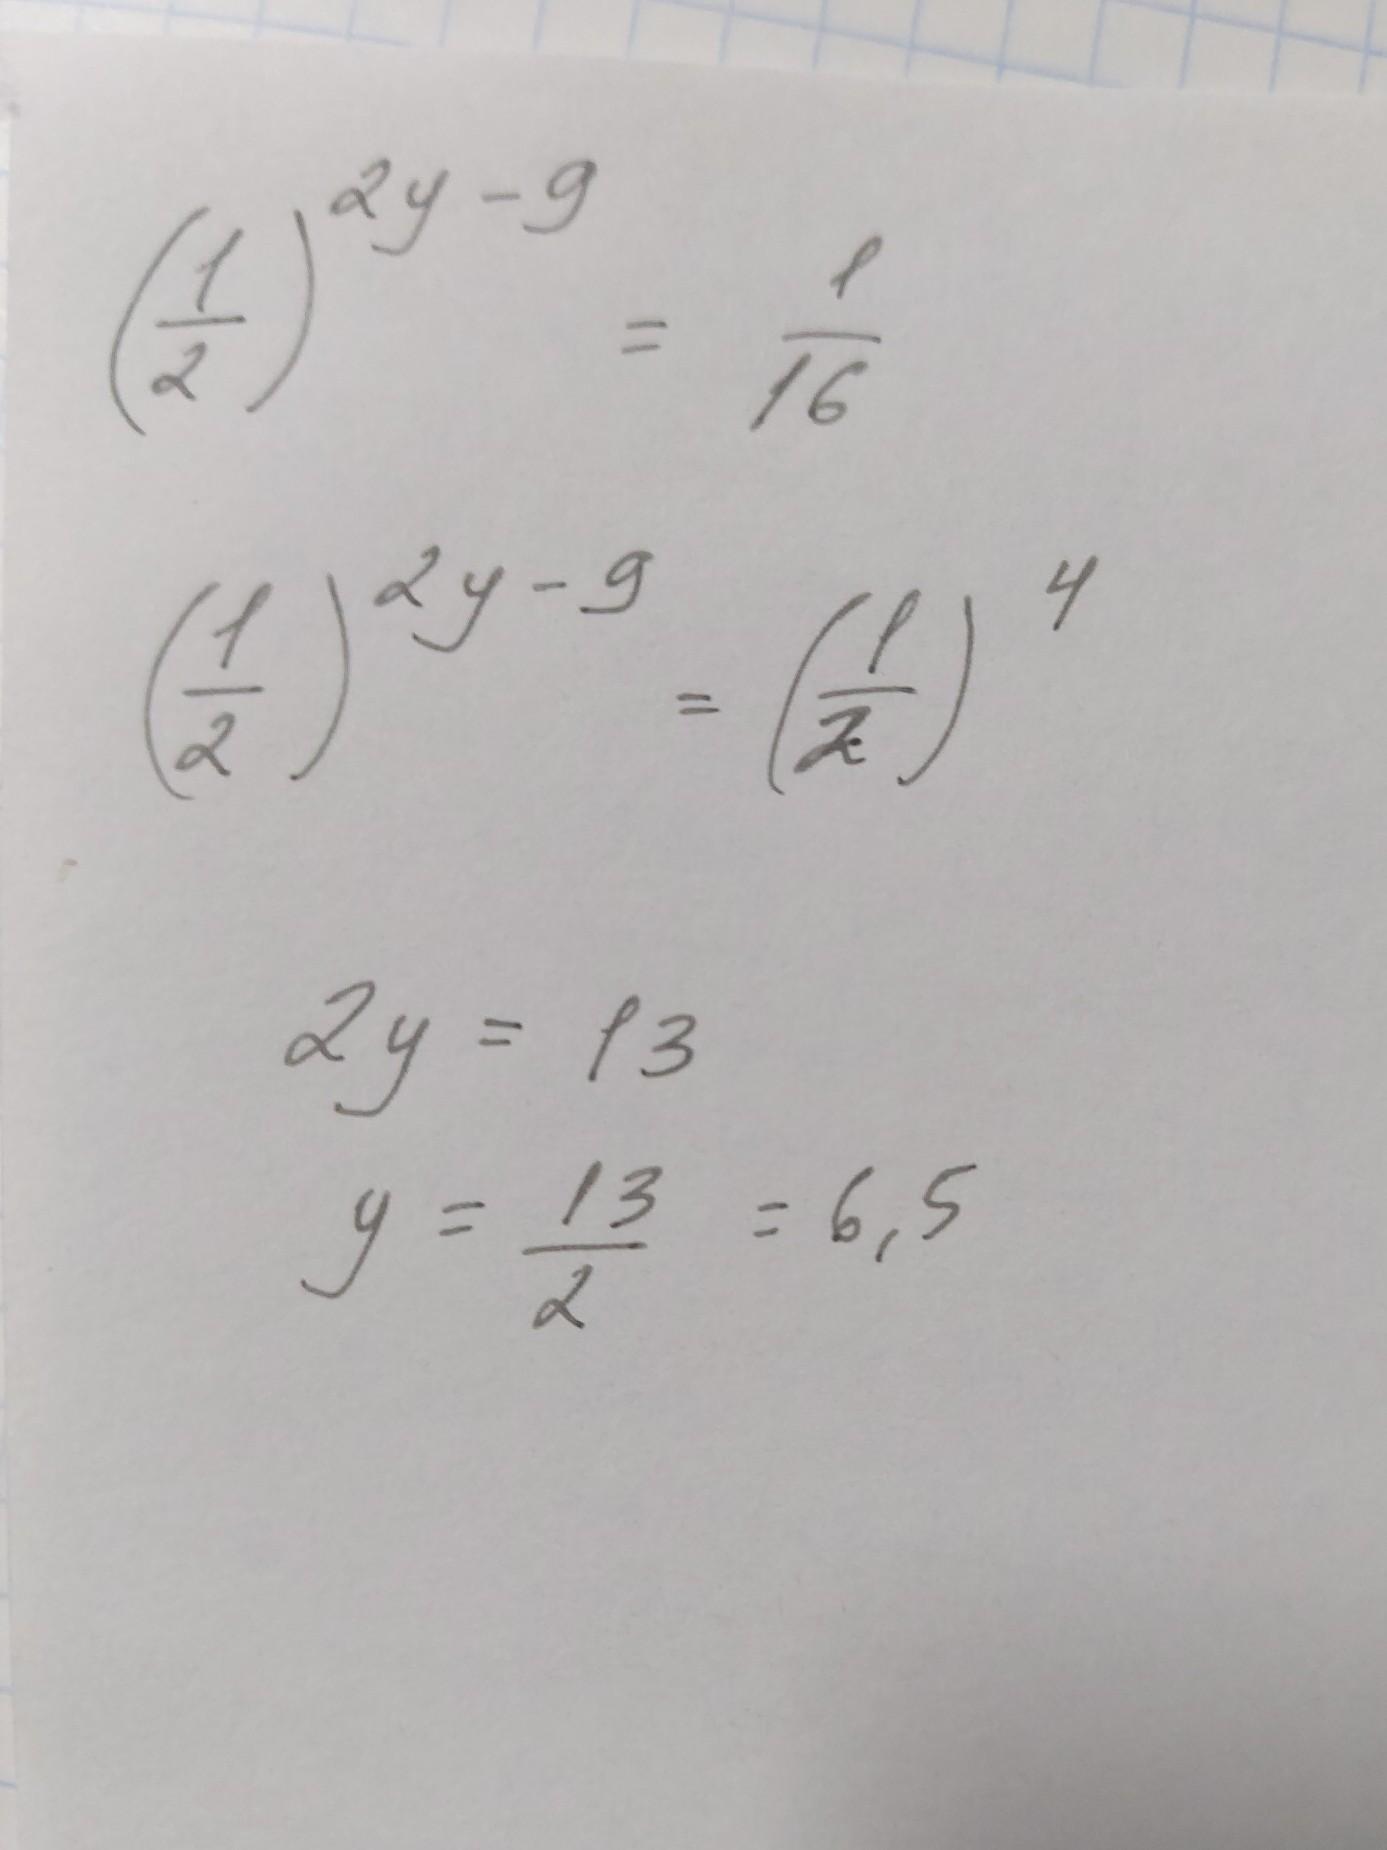 (1/2)^(2y-9) = 1/16
(1/2)^(2y-9) = (1/2)^4
2y = 13
y = 13/2 = 6,5